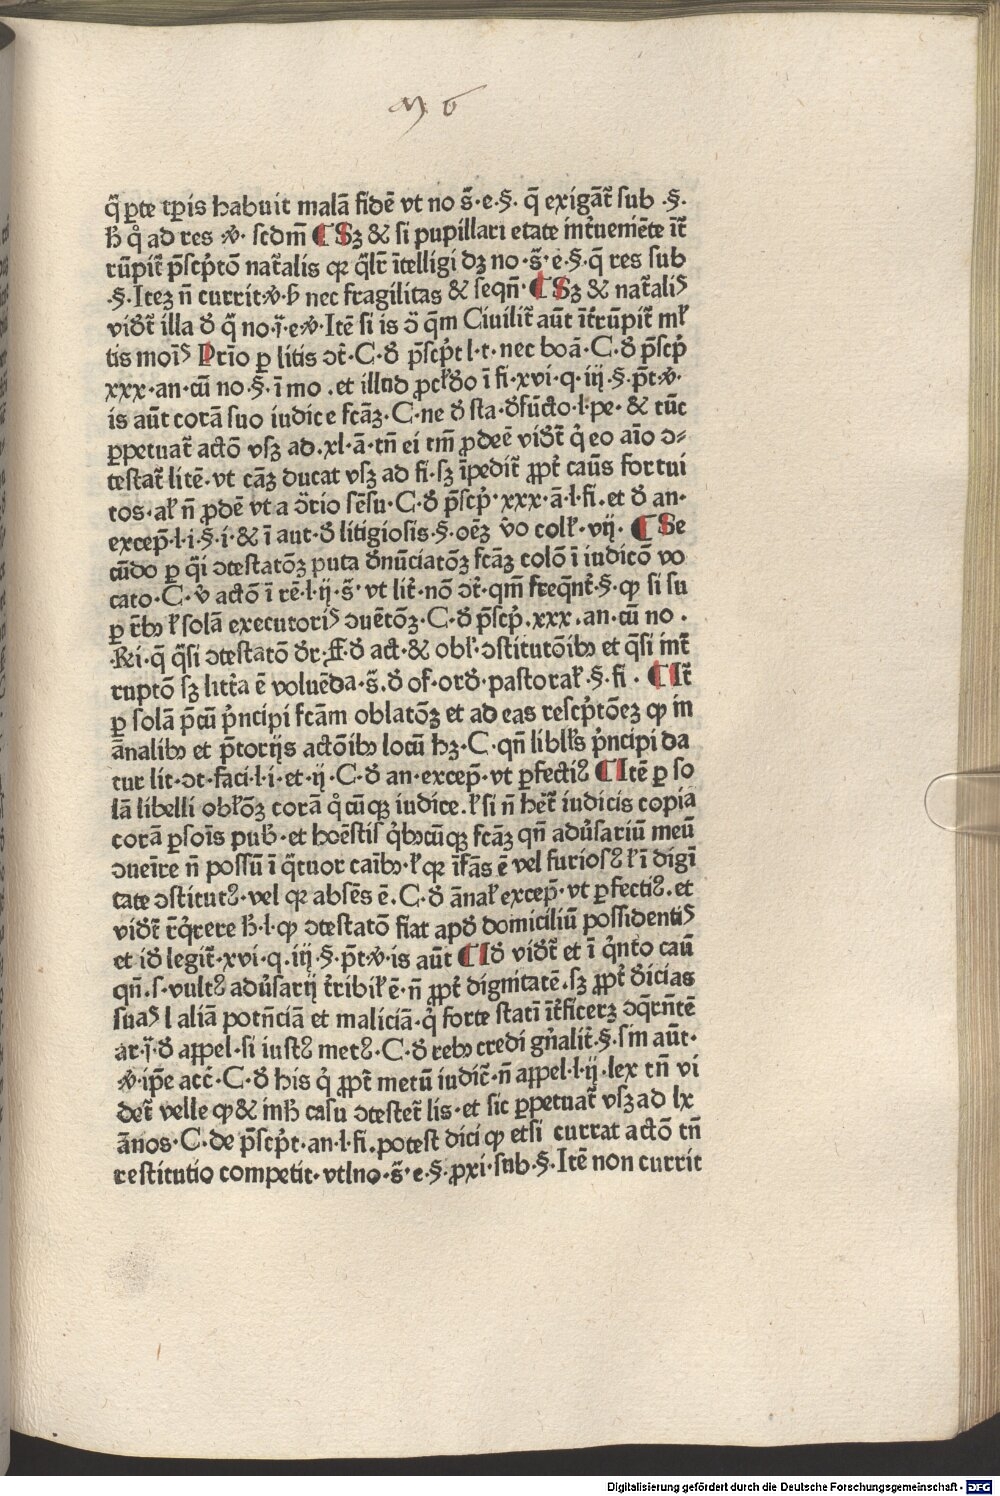 m 6
q̄ ꝑte tꝑis habuit malā fidē vt no s̄·e·§· q̄ exigāt᷑ sub ·§·
ħ qͦ ad res ꝟ· scdm̄ ¶ Sꝫ & si pupillari etate int᷑uemēte īt᷑
rūpit᷑ p̄scp̍tō nat᷑alis qꝛ q̄lr̄ ītelligi dꝫ no·s̄·e·§·q̄ res sub
·§·Itēꝫ n̄ currit·ꝟ·h̄ nec fragilitas & seqn̄·¶ Sꝫ & nat᷑aliꝰ
vidt᷑ illa ꝺ̄ q̄ no·j̄·e·ꝟ·Itē si is ↄ̄ q̄m Ciuilit᷑ aūt īt᷑rūpit᷑ ml̄
tis moīꝰ Prīo ꝑ litis ↄt᷑·C·ꝺ̄ p̄scp̍t l·t·nec boā·C·ꝺ̄ p̄scp̍
xxx·an·cū no·§·ī mo·et illud ꝓcl̄do ī fi·xvi·q·iij·§·p̄t·ꝟ·
is aūt corā suo iudice fcāꝫ·C·ne ꝺ̄ sta·ꝺ̄fūcto·l·pe·& tūc
ꝑpetuat᷑ actō vsꝫ ad·xl·ā·tn̄ ei tm̄ ꝓdeē vidt᷑ q̍ eo aīo ↄ⸗
testat᷑ litē·vt cāꝫ ducat vsꝫ ad fi·sꝫ īpedit᷑ ꝓpt᷑ caūs fortui
tos·al̄ n̄ ꝓdē vt a ↄ̄rio sēsu·C·ꝺ̄ p̄scp̍·xxx·ā·l·fi·et ꝺ̄ an·
excep̄·l·i·§·i·& ī aut·ꝺ̄ litigiosis·§·oēꝫ v̄o coll̄·vij·¶ Se
cūdo ꝑ q̄i ↄtestatōꝫ puta ꝺ̄nūciatōꝫ fcāꝫ colō ī iudicō vo
cato·C·v̄ actō ī rē·l·ij·s̄·vt lit᷑·nō ↄt᷑·qm̄ freq̄nt᷑·§·ꝙ si su
ꝑ t᷑bꝫ l̄ solā executoriꝰ ↄuētōꝫ·C·ꝺ̄ p̄scp̍·xxx·an·cū no·
·Ri·q̄ q̄si ↄtestatō ꝺ̄r·ff·ꝺ̄ act·& obl̄·ↄstitutōibꝫ et q̄si int᷑
ruptō sꝫ litt᷑a ē voluēda·s̄·ꝺ̄ of·orꝺ̄·pastoral̄·§·fi·¶ It᷑
ꝑ solā p̄cū p̍ncipi fcām oblatōꝫ et ad eas rescp̍tōeꝫ ꝙ in
ānalibꝫ et p̄torijs actōibꝫ locū hꝫ·C·qn̄ libll̄s p̍ncipi da
tur lit·ↄt·faci·l·i·et·ij·C·ꝺ̄ an·excep̄·vt ꝑfectiꝰ ¶ Itē ꝑ so
lā libelli obl̄ōꝫ corā qͦcūqꝫ iudice·l̄ si n̄ hēt᷑ iudicis copia
corā ꝑsoīs pub̄·et hoēstis q̍bꝫcūqꝫ fcāꝫ qn̄ adūsariū meū
ↄueīre n̄ possū ī q̄tuor caībꝫ·l̄ qꝛ īfās ē vel furiosꝰ l̄ ī digī
tate ↄstitutꝰ·vel qꝛ absēs ē·C·ꝺ̄ ānal̄ excep̄·vt ꝑfectiꝰ·et
vidt᷑ r̄q̍rere ħ·l·ꝙ ↄtestatō fiat apꝺ̄ domiciliū possidentiꝰ
et iꝺ̄ legit᷑·xvi·q·iij·§·p̄t·ꝟ·is aūt ¶ Iꝺ̄ vidt᷑ et ī q̍nto caū
qn̄·s·vultꝰ adūsarij t᷑ribil̄ ē·n̄ ꝓpt᷑ dignitatē·sꝫ ꝓpt᷑ ꝺ̄icias
suaꝰ l aliā potn̄ciā et maliciā·q̍ forte statī īt᷑ficerꝫ ↄq̄rn̄tē
ar·j̄·ꝺ̄ appel·si iustꝰ metꝰ·C·ꝺ̄ rebꝫ credi gn̄alit᷑·§·sin aūt·
ꝟ·ip̄e acc̄·C·ꝺ̄ his q̍ ꝓpt᷑ metū iudic̄·n̄ appel·l·ij·lex tn̄ vi
det᷑ velle ꝙ & inħ casu ↄtestet᷑ lis·et sic ꝑpetuat᷑ vsꝫ ad lx
ānos·C·de p̄scp̍t·an·l·fi·potest dici ꝙ etsi currat actō tn̄
restitutio competit·vtlno·s̄·e·§·ꝓxi·sub·§·Itē non currit
Digitalisierung gefördert durch die Deutsche Forschungsgemeinschaft - DFG